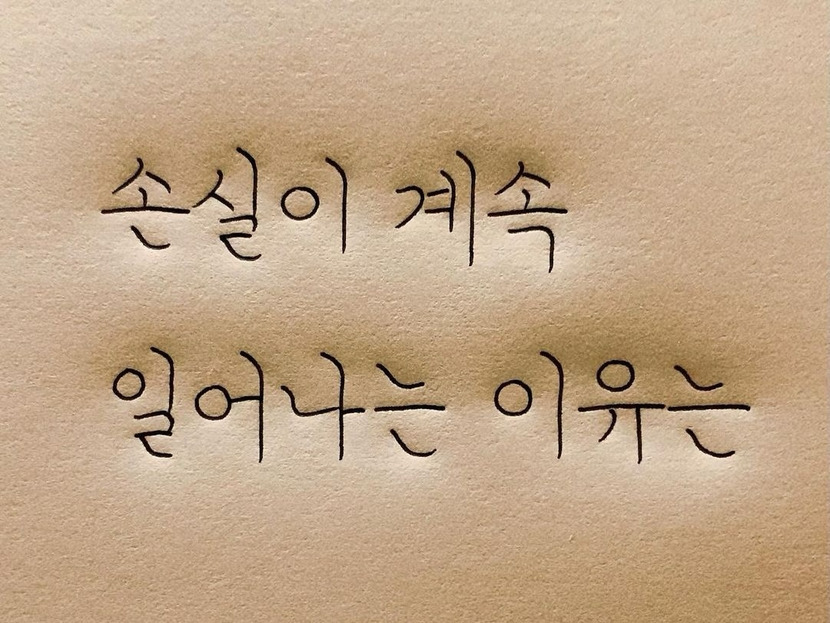 손실이 계속
일어나는 이유는